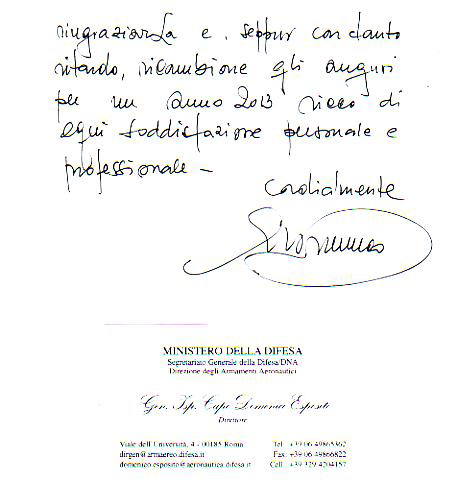 ringraziarLa e, seppur con tanto
ritardo, ricambiare gli auguri
per un anno 2013 ricco di
ogni soddisfazione personale e
professionale -
Cordialmente
MINISTERO DELLA DIFESA
Segretariato Generale della Difesa/DNA
Direzione degli Armamenti Aeronautici
Gen. Isp. Capo Domenico Esposito
Direttore
Viale dell'Università, 4 - 00185 Roma Tel. +39 06 49865362
dirgen@armaereo.difesa.it Fax: +39 06 49866822
domenico.esposito@aeronautica.difesa.it Cell. +39 329 4204157